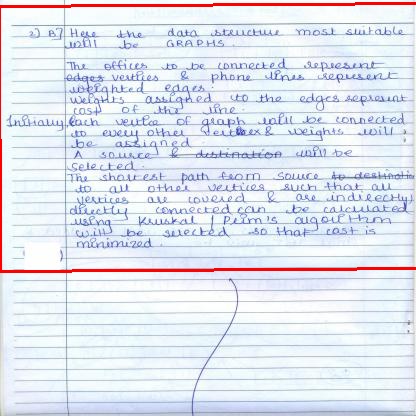 2) B] Here the data structure most suitable
will be GRAPHS.
The offices to be connected represent
edges verties & phone lines represent
weighted edges.
Weights assigned to the edges represent
cost of the line.
Initially, each vertie of graph will be connected
to every other vertex & weights will
be assigned.
A source & destination will be
selected.
The shortest path from source to destinatio
to all other vertices such that all
vertices are covered & are indirectly/
directly connected can be calculated
using Kruskal / Prim's algorithm
will be selected so that cost is
minimized.